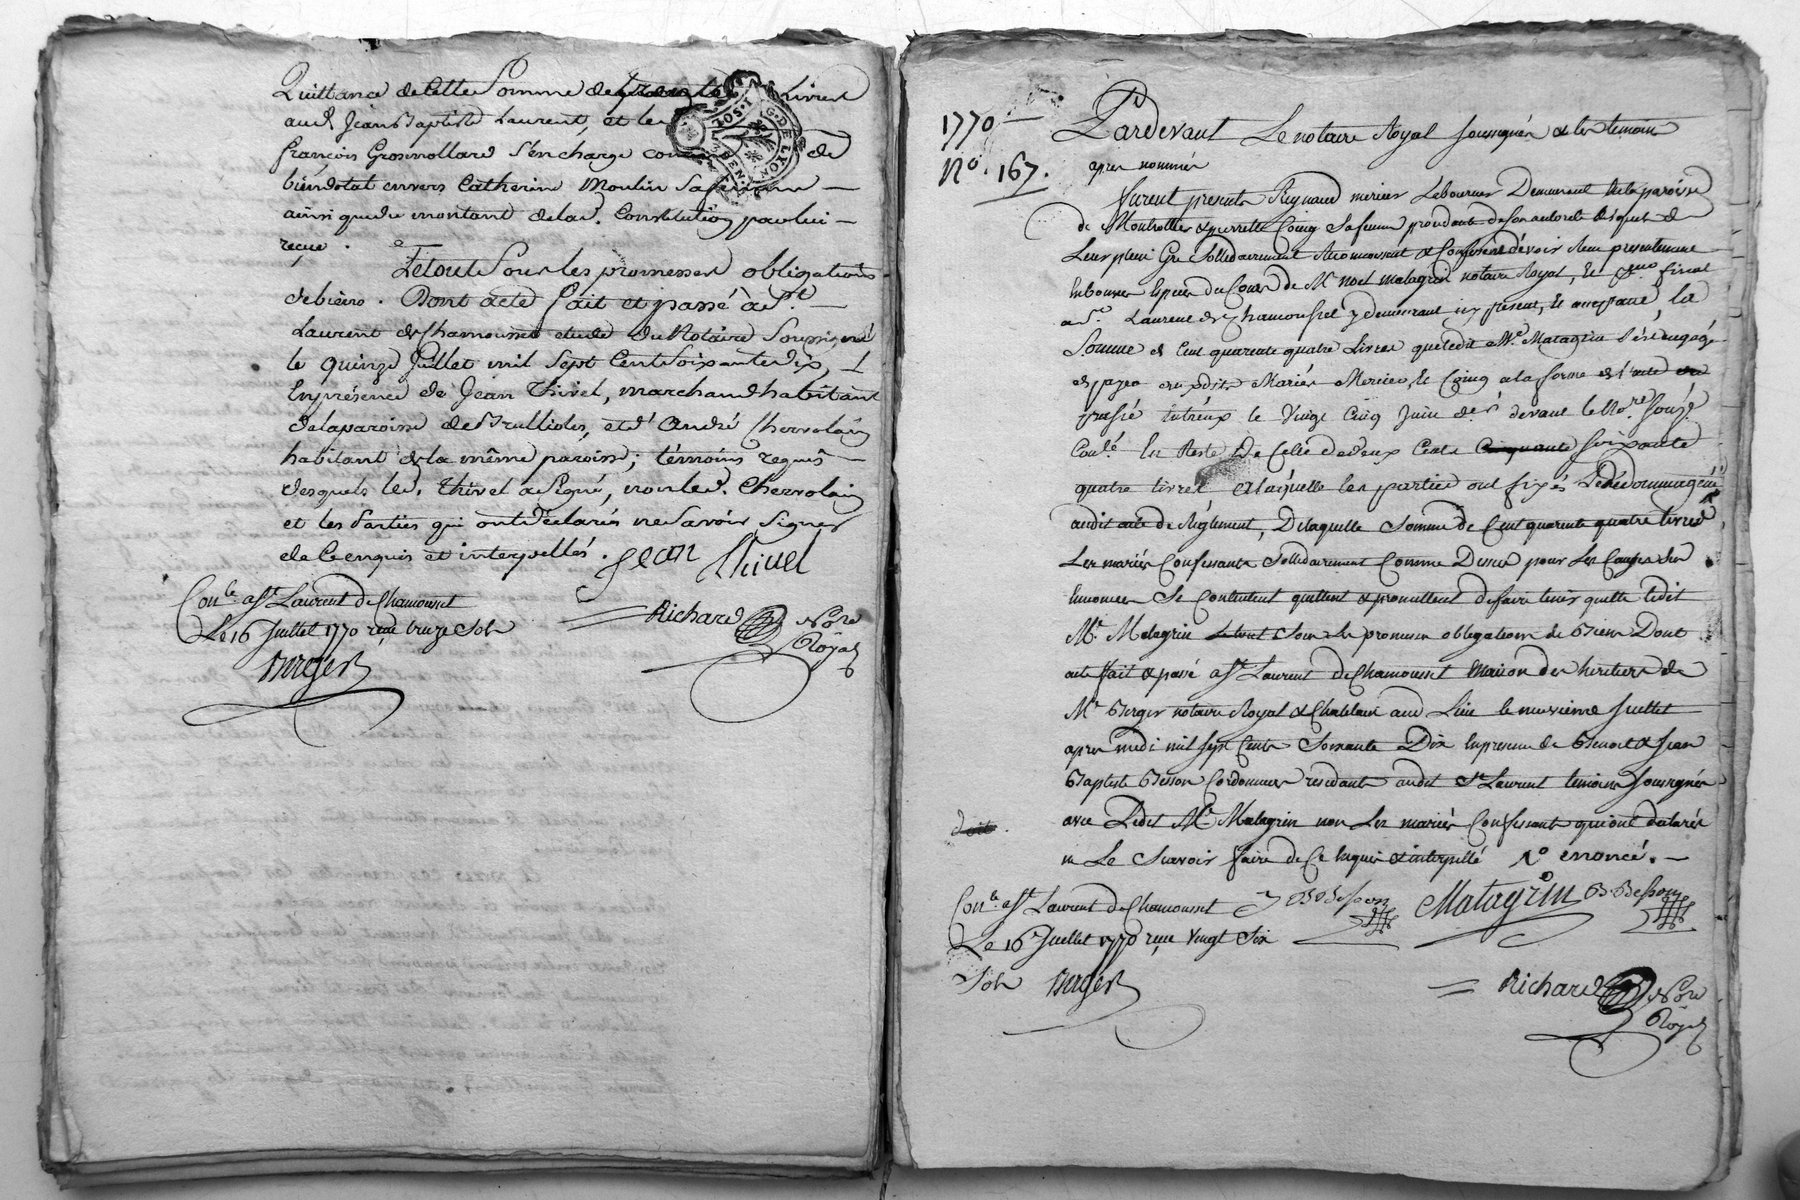 Quittance de cette Somme de trente Livres
aud. Jean Baptiste Laurent, et led.
françois Grosmollard S'en charge de
bien dotal envers Catherine Moulin Sa femme
ainsi que du montant de lad. Constitution par lui
reçue.
Le tout Sous les promesses obligations
de biens. Dont acte fait et passé à St.
Laurent de Chamousset etude du Notaire Soussigné
le quinze Juillet mil Sept Cent Soixante dix,
En présence de Jean Thivel, marchand habitant
de la paroisse de Brullioles, et d'André Chervolain
habitant de la même paroisse; témoins requis
desquels led. Thivel a Signé, non led. Chervolain
et les Parties qui ont déclarés ne Savoir Signer
de Ce enquis et interpellés.
Jean Thivel
Conlé a St Laurent de Chamousset
Le 16 Juillet 1770 reçu treize Sols
Berger
Richard Nore
Royal
G. DE LYON
1. SOL
1770
No. 167.
Pardevant Le notaire Royal Soussigné & les temoins
apres nommés
furent presents Reynaud mercier Laboureur Demeurant de la paroisse
de Montrottier & pierrette Coing Sa femme procedante de Son autorité Lesquels de
Leur plein Gré Sollidairement Reconnoissent & Confessent devoir presentement
En bonnes Especes du Cours de Mr. noel matagrin notaire Royal, & fiscal
a St. Laurent de Chamousset y demeurant, icy present, & acceptant, la
Somme de Cent quarente quatre Livres que ledit Mr. Matagrin S'est engagé
de payer auxdits Mariés Mercier & Coing a la forme de l'acte
passé Entreux le Vingt Cinq Juin der. devant le Nore. Souzé.
Conlé. En Reste de Celle de deux Cents Cinquante soixante
quatre livres a laquelle les parties ont fixés
audit acte de Règlement, De laquelle Somme de Cent quarente quatre livres
Les mariés Confessants Sollidairement Comme Dessus pour Les Causes
Enoncées Se Contentent quittent & promettent de faire tenir quitte ledit
Mr. Matagrin Le tout Sous les promesses obligations de biens Dont
acte fait & passé a St Laurent de Chamousset Maison des heritiers de
Mr Berger notaire Royal & Chatelain aud Lieu le neuvieme Juillet
apres midi mil Sept Cents Soixante Dix En presence de Benoit & Jean
Baptiste Besson Cordonniers residants audit St Laurent temoins Soussignés
avec Ledit Mr. Matagrin non Les mariés Confessants qui ont declarés
ne Le Scavoir faire de Ce Enquis & interpellé No énoncé.
Conlé. a St Laurent de Chamousset
J B Besson
Matagrin
B. Besson
Le 16 Juillet 1770 reçu Vingt Six
Sols Berger
Richard Nore
Royal